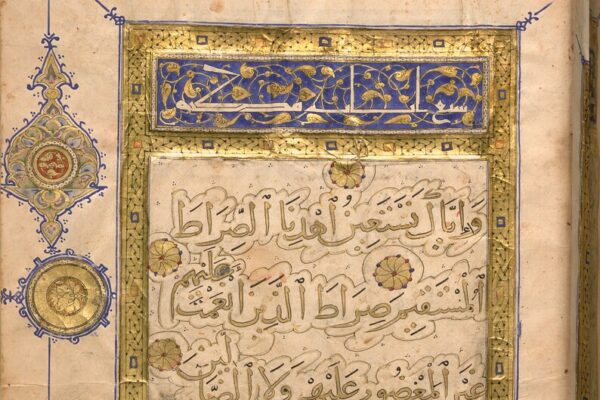 وَإِيَّاكَ نَسْتَعِينُ اهْدِنَا الصِّرَاطَ
الْمُسْتَقِيمَ صِرَاطَ الَّذِينَ أَنْعَمْتَ عَلَيْهِمْ
غَيْرِ الْمَغْضُوبِ عَلَيْهِمْ وَلَا الضَّالِّينَ